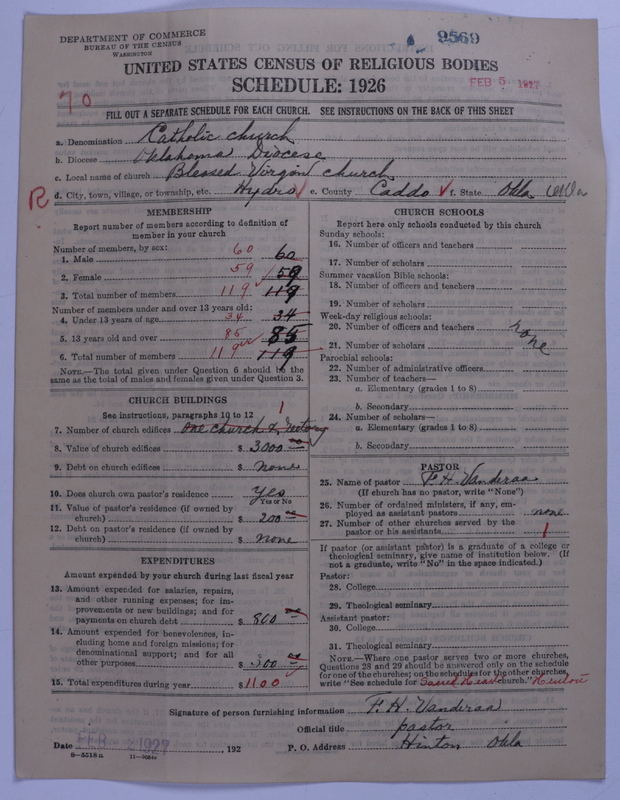 DEPARTMENT OF COMMERCE
BUREAU OF THE CENSUS
WASHINGTON
9569
UNITED STATES CENSUS OF RELIGIOUS BODIES
SCHEDULE: 1926
FEB 5 1927
70
FILL OUT A SEPARATE SCHEDULE FOR EACH CHURCH. SEE INSTRUCTIONS ON THE BACK OF THIS SHEET
a. Denomination Catholic church
b. Diocese Oklahoma Diocese
c. Local name of church Blessed Virgin church
R d. City, town, village, or township, etc. Hydro e. County Caddo f. State Okla
MEMBERSHIP
Report number of members according to definition of
member in your church
Number of members, by sex:
1. Male 60 60
2. Female 59 59
3. Total number of members 119 119
Number of members under and over 13 years old:
4. Under 13 years of age 34 34
5. 13 years old and over 85 85
6. Total number of members 119 119
NOTE.—The total given under Question 6 should be the
same as the total of males and females given under Question 3.
CHURCH BUILDINGS
See instructions, paragraphs 10 to 12
1
7. Number of church edifices one church & rectory
8. Value of church edifices $ 3000
9. Debt on church edifices $ none
10. Does church own pastor's residence Yes
Yes or No
11. Value of pastor's residence (if owned by
church) $ 200
12. Debt on pastor's residence (if owned by
church) $ none
EXPENDITURES
Amount expended by your church during last fiscal year
13. Amount expended for salaries, repairs,
and other running expenses; for im-
provements or new buildings; and for
payments on church debt $ 800
14. Amount expended for benevolences, in-
cluding home and foreign missions; for
denominational support; and for all
other purposes $ 300
15. Total expenditures during year $ 1100
CHURCH SCHOOLS
Report here only schools conducted by this church
Sunday schools:
16. Number of officers and teachers
17. Number of scholars
Summer vacation Bible schools:
18. Number of officers and teachers
19. Number of scholars
Week-day religious schools:
20. Number of officers and teachers none
21. Number of scholars
Parochial schools:
22. Number of administrative officers
23. Number of teachers—
a. Elementary (grades 1 to 8)
b. Secondary
24. Number of scholars—
a. Elementary (grades 1 to 8)
b. Secondary
PASTOR
25. Name of pastor F. H. Vanderaa
(If church has no pastor, write "None")
26. Number of ordained ministers, if any, em-
ployed as assistant pastors none
27. Number of other churches served by the
pastor or his assistants 1
If pastor (or assistant pastor) is a graduate of a college or
theological seminary, give name of institution below. (If
not a graduate, write "No" in the space indicated.)
Pastor:
28. College
29. Theological seminary
Assistant pastor:
30. College
31. Theological seminary
NOTE.—Where one pastor serves two or more churches,
Questions 28 and 29 should be answered only on the schedule
for one of the churches; on the schedules for the other churches,
write "See schedule for Sacred Heart church." Hinton
Signature of person furnishing information F. H. Vanderaa
Official title pastor
Date FEB 1927 , 192 P. O. Address Hinton Okla
8—5518a